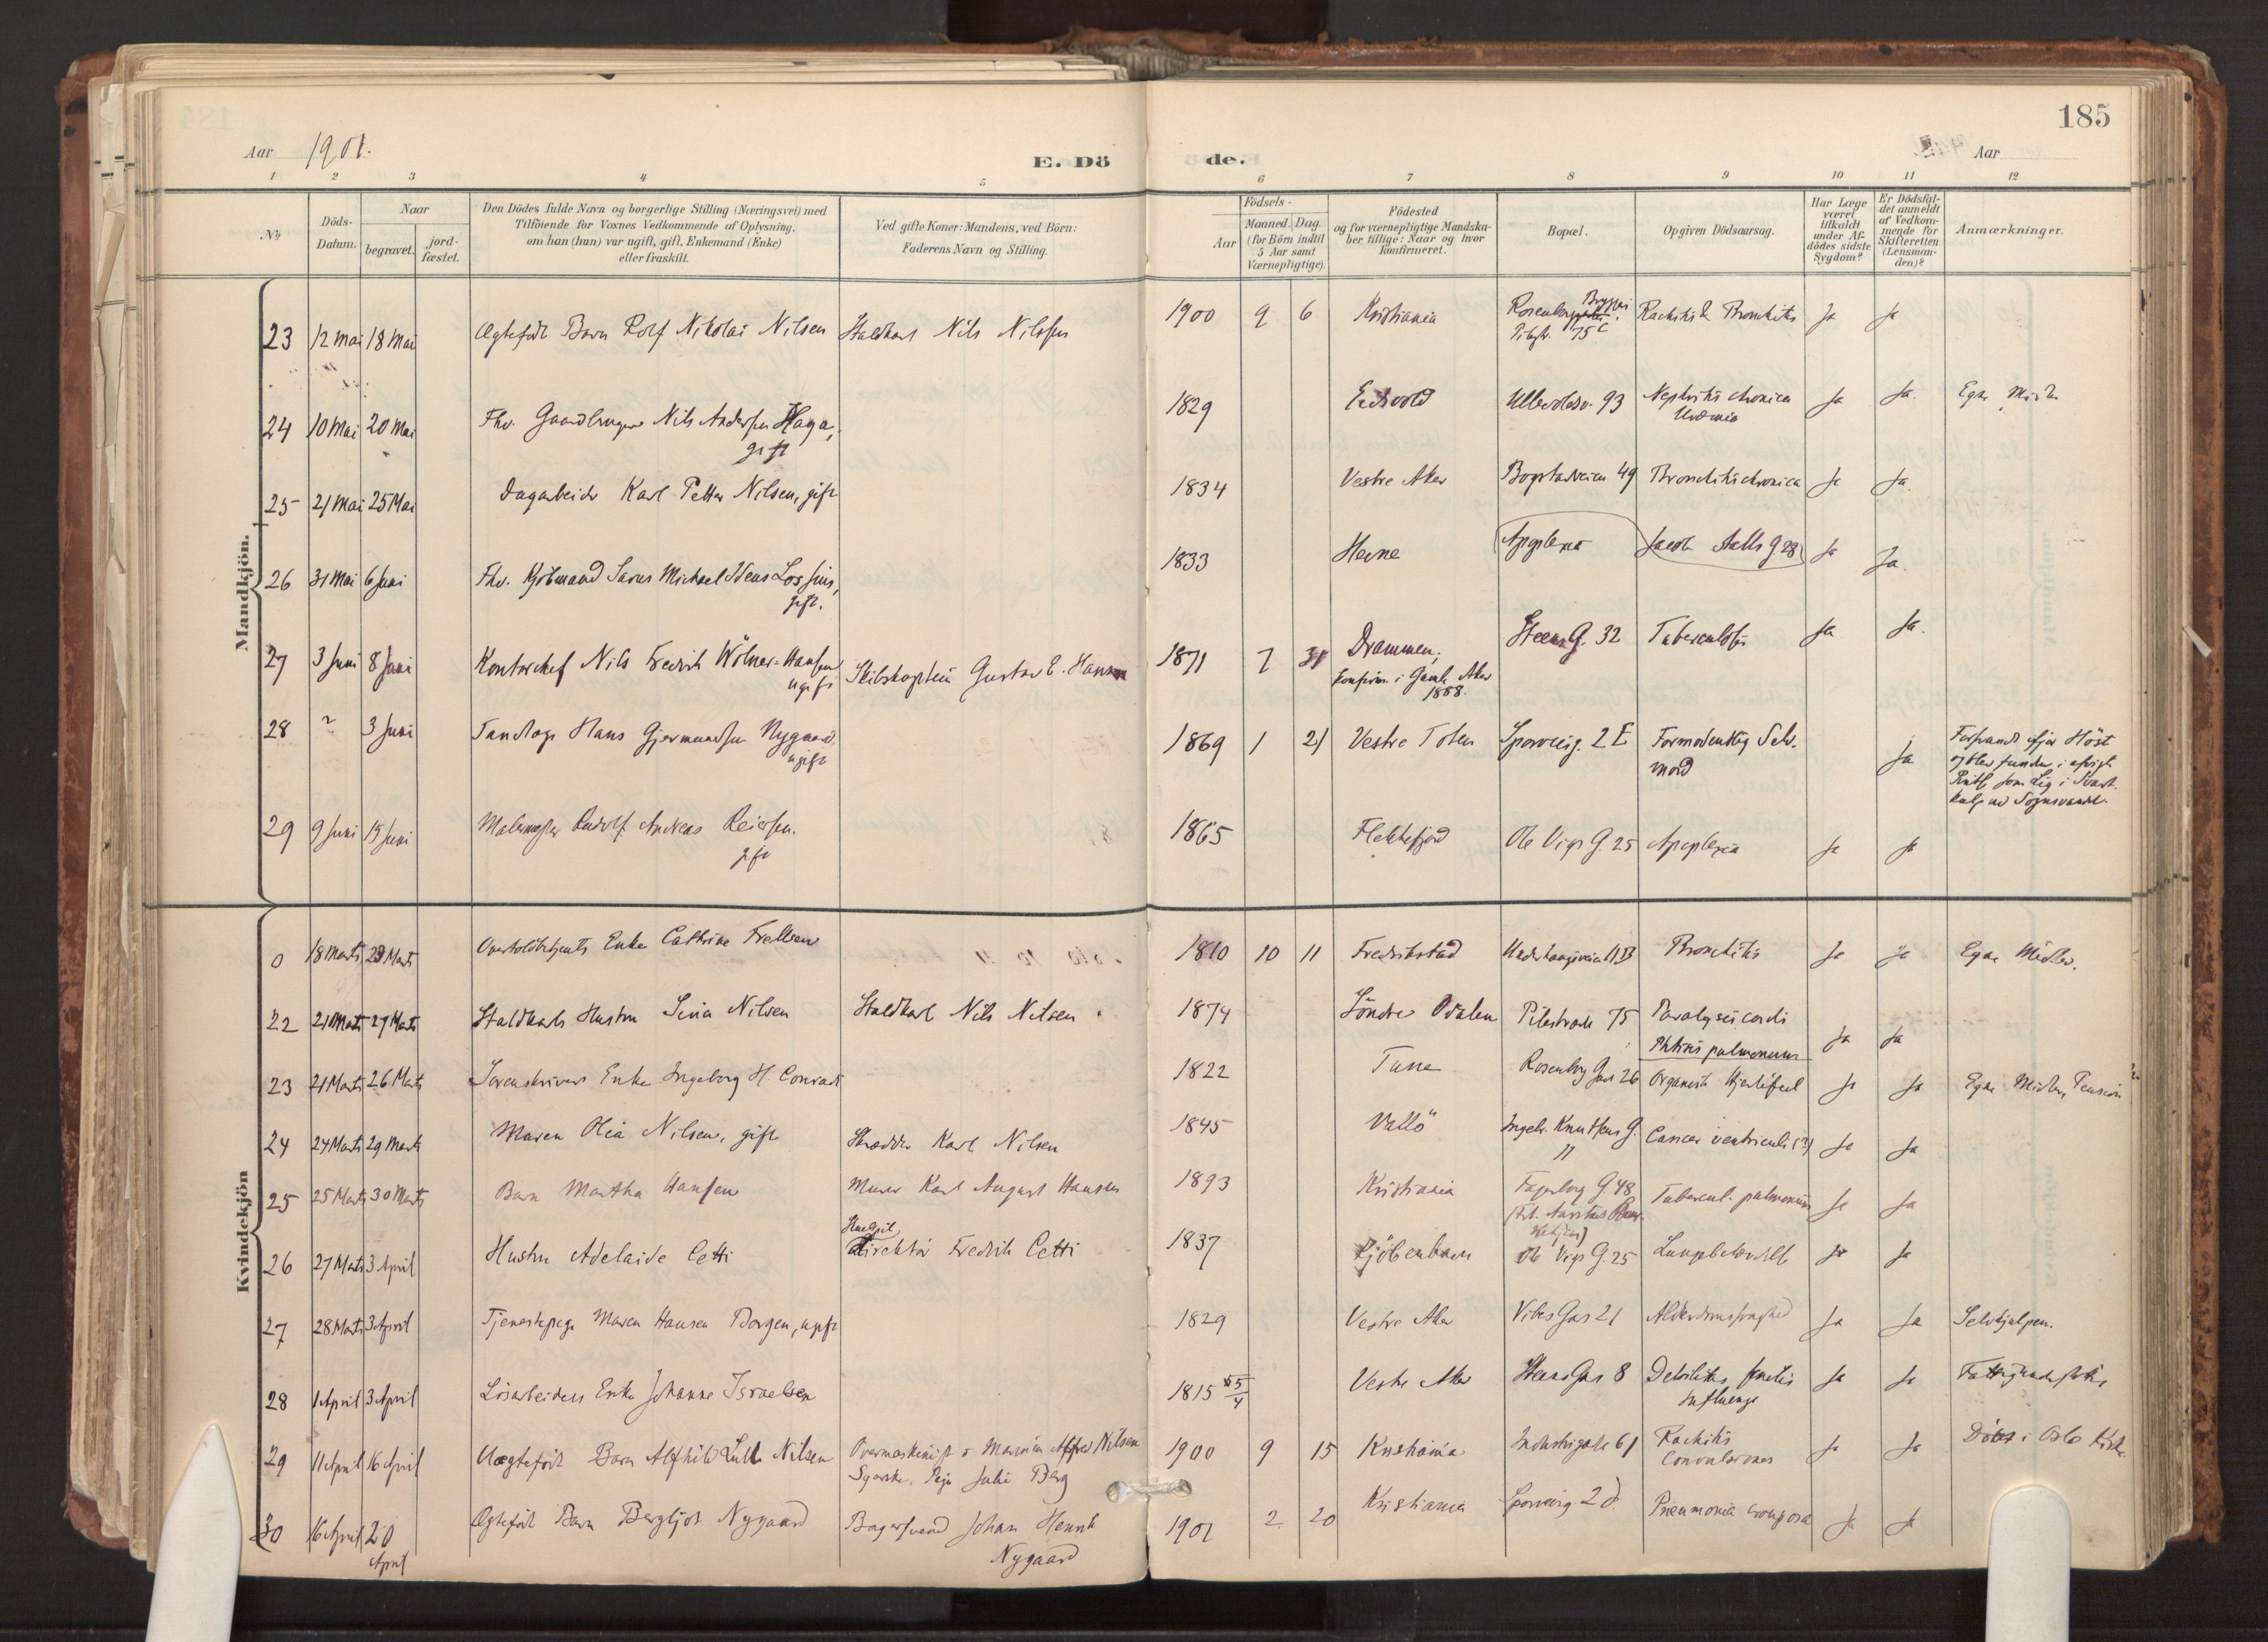 185
Aar 1901.
E. Dö de.
Aar
1 2 3 4 5 6 7 8 9 10 11 12
No
Döds-Datum.
Naar
begravet.
jord-fæstet.
Den Dödes fulde Navn og borgerlige Stilling (Næringsvei) med
Tilföiende for Voxnes Vedkommende af Oplysning,
om han (hun) var ugift, gift, Enkemand (Enke)
eller fraskilt.
Ved gifte Koner: Mandens, ved Börn:
Faderens Navn og Stilling.
Födsels-
Aar
Maaned. Dag.
(for Börn indtil
5 Aar samt
Værnepligtige).
Födested
og for værnepligtige Mandska-
ber tillige: Naar og hvor
konfirmeret.
Bopæl.
Opgiven Dödsaarsag.
Har Læge
været
tilkaldt
under Af-
dödes sidste
Sygdom?
Er Dödsfal-
det anmeldt
af Vedkom-
mende for
Skifteretten
(Lensman-
den)?
Anmærkninger.
Mandkjön.
23 12 Mai 18 Mai Ægtefødt Barn Rolf Nikolai Nilsen Staldkarl Nils Nilssen 1900 9 6 Kristiania Pilestr. 75 c Rachitis & Bronchitis Ja Ja
24 10 Mai 20 Mai Fhv. Gaardbruger Nils Andersen Haga, 1829 Eidsvold Ullevoldsv. 93 Nephritis chronica Ja Ja. Egne Midler
gift
Uræmia
25 21 Mai 25 Mai Dagarbeider Karl Petter Nilsen, gift 1834 Vestre Aker Bogstadveien 49 Bronchitis chronica Ja Ja.
26 31 Mai 6 Juni Fhv. Kjöbmand Michael Lossius, 1833 Hevne Apoplexia Jacob Aalls G 28 Ja Ja.
gift.
27 3 Juni 8 Juni Kontorchef Nils Fredrik Wölner-Hansen Skibskaptein Gustav E. Hansen 1871 7 31 Drammen, Steens G. 32 Tuberculosis Ja Ja.
ugift
konfirm. i Gamle Aker
1888.
28 ? 3 Juni Tandlæge Hans Gjermundsen Nygaard 1869 1 21 Vestre Toten Sporveisg. 2 E Formodentlig Selv- Ja Forsvandt ifjor Höst
ugift
mord
og blev funden i
som Lig i Svart-
kulp ved Sognsvandet.
29 9 Juni 15 Juni Malermester Rudolf Andreas Reiersen. 1865 Flekkefjord Ole Vigs G. 25 Apoplexia Ja Ja
gift
Kvindekjön
0 18 Marts 23 Marts Enke Cathrine Frellsen 1810 10 11 Fredrikstad Underhaugsveien 11 B Bronchitis Ja Ja Egne Midler.
22 21 Marts 27 Marts Staldkarls Hustru Sina Nilsen Staldkarl Nils Nilsen 1874 Söndre Odalen Pilestræde 75 Paralysis cordis Ja Ja
Phtisis pulmonum
23 21 Marts 26 Marts Sorenskrivers Enke Ingeborg H. Conradi 1822 Tune Rosenborg Gade 26 Organisk Hjertefeil Ja Ja Egne Midler, Pension
24 24 Marts 29 Marts Maren Olea Nilsen, gift Skrædder Karl Nilsen 1845 Vallö Ingeb. Knutsens G. Cancer ventriculi (?) Ja Ja
11
25 25 Marts 30 Marts Barn Martha Hansen Murer Karl August Hansen 1893 Kristiania Fagerborg G 48 Tubercul. pulmonum Ja Ja
26 27 Marts 3 April Hustru Adelaide Cetti Direktör Fredrik Cetti 1837 Kjöbenhavn Ole Vigs G. 25 Lungebetændelse Ja Ja
27 28 Marts 3 April Tjenestepige Maren Hansen Borgen, ugift 1829 Vestre Aker Vibes Gade 21 Alderdomssvaghed Ja Ja Selvhjulpen.
28 1 April 3 April Lösarbeiders Enke Johanne Israelsen 1815 5/4 Vestre Aker Steens Gade 8 Debilitas senilis Ja Ja
Influenza
29 11 April 16 April Uægtefödt Barn Alfhild Nilsen Overmaskinist i Marinen Alfred Nilsen 1900 9 15 Kristiania Industrigade 61 Rachitis Ja Ja Döbt i Oslo Kirke
Pige Julie Berg
Convulsiones
30 16 April 20 Ægtefödt Barn Bergljot Nygaard Bagersvend Johan Henrik 1901 2 20 Kristiania Sporveisg. 2 d. Pneumonia crouposa Ja Ja
April
Nygaard